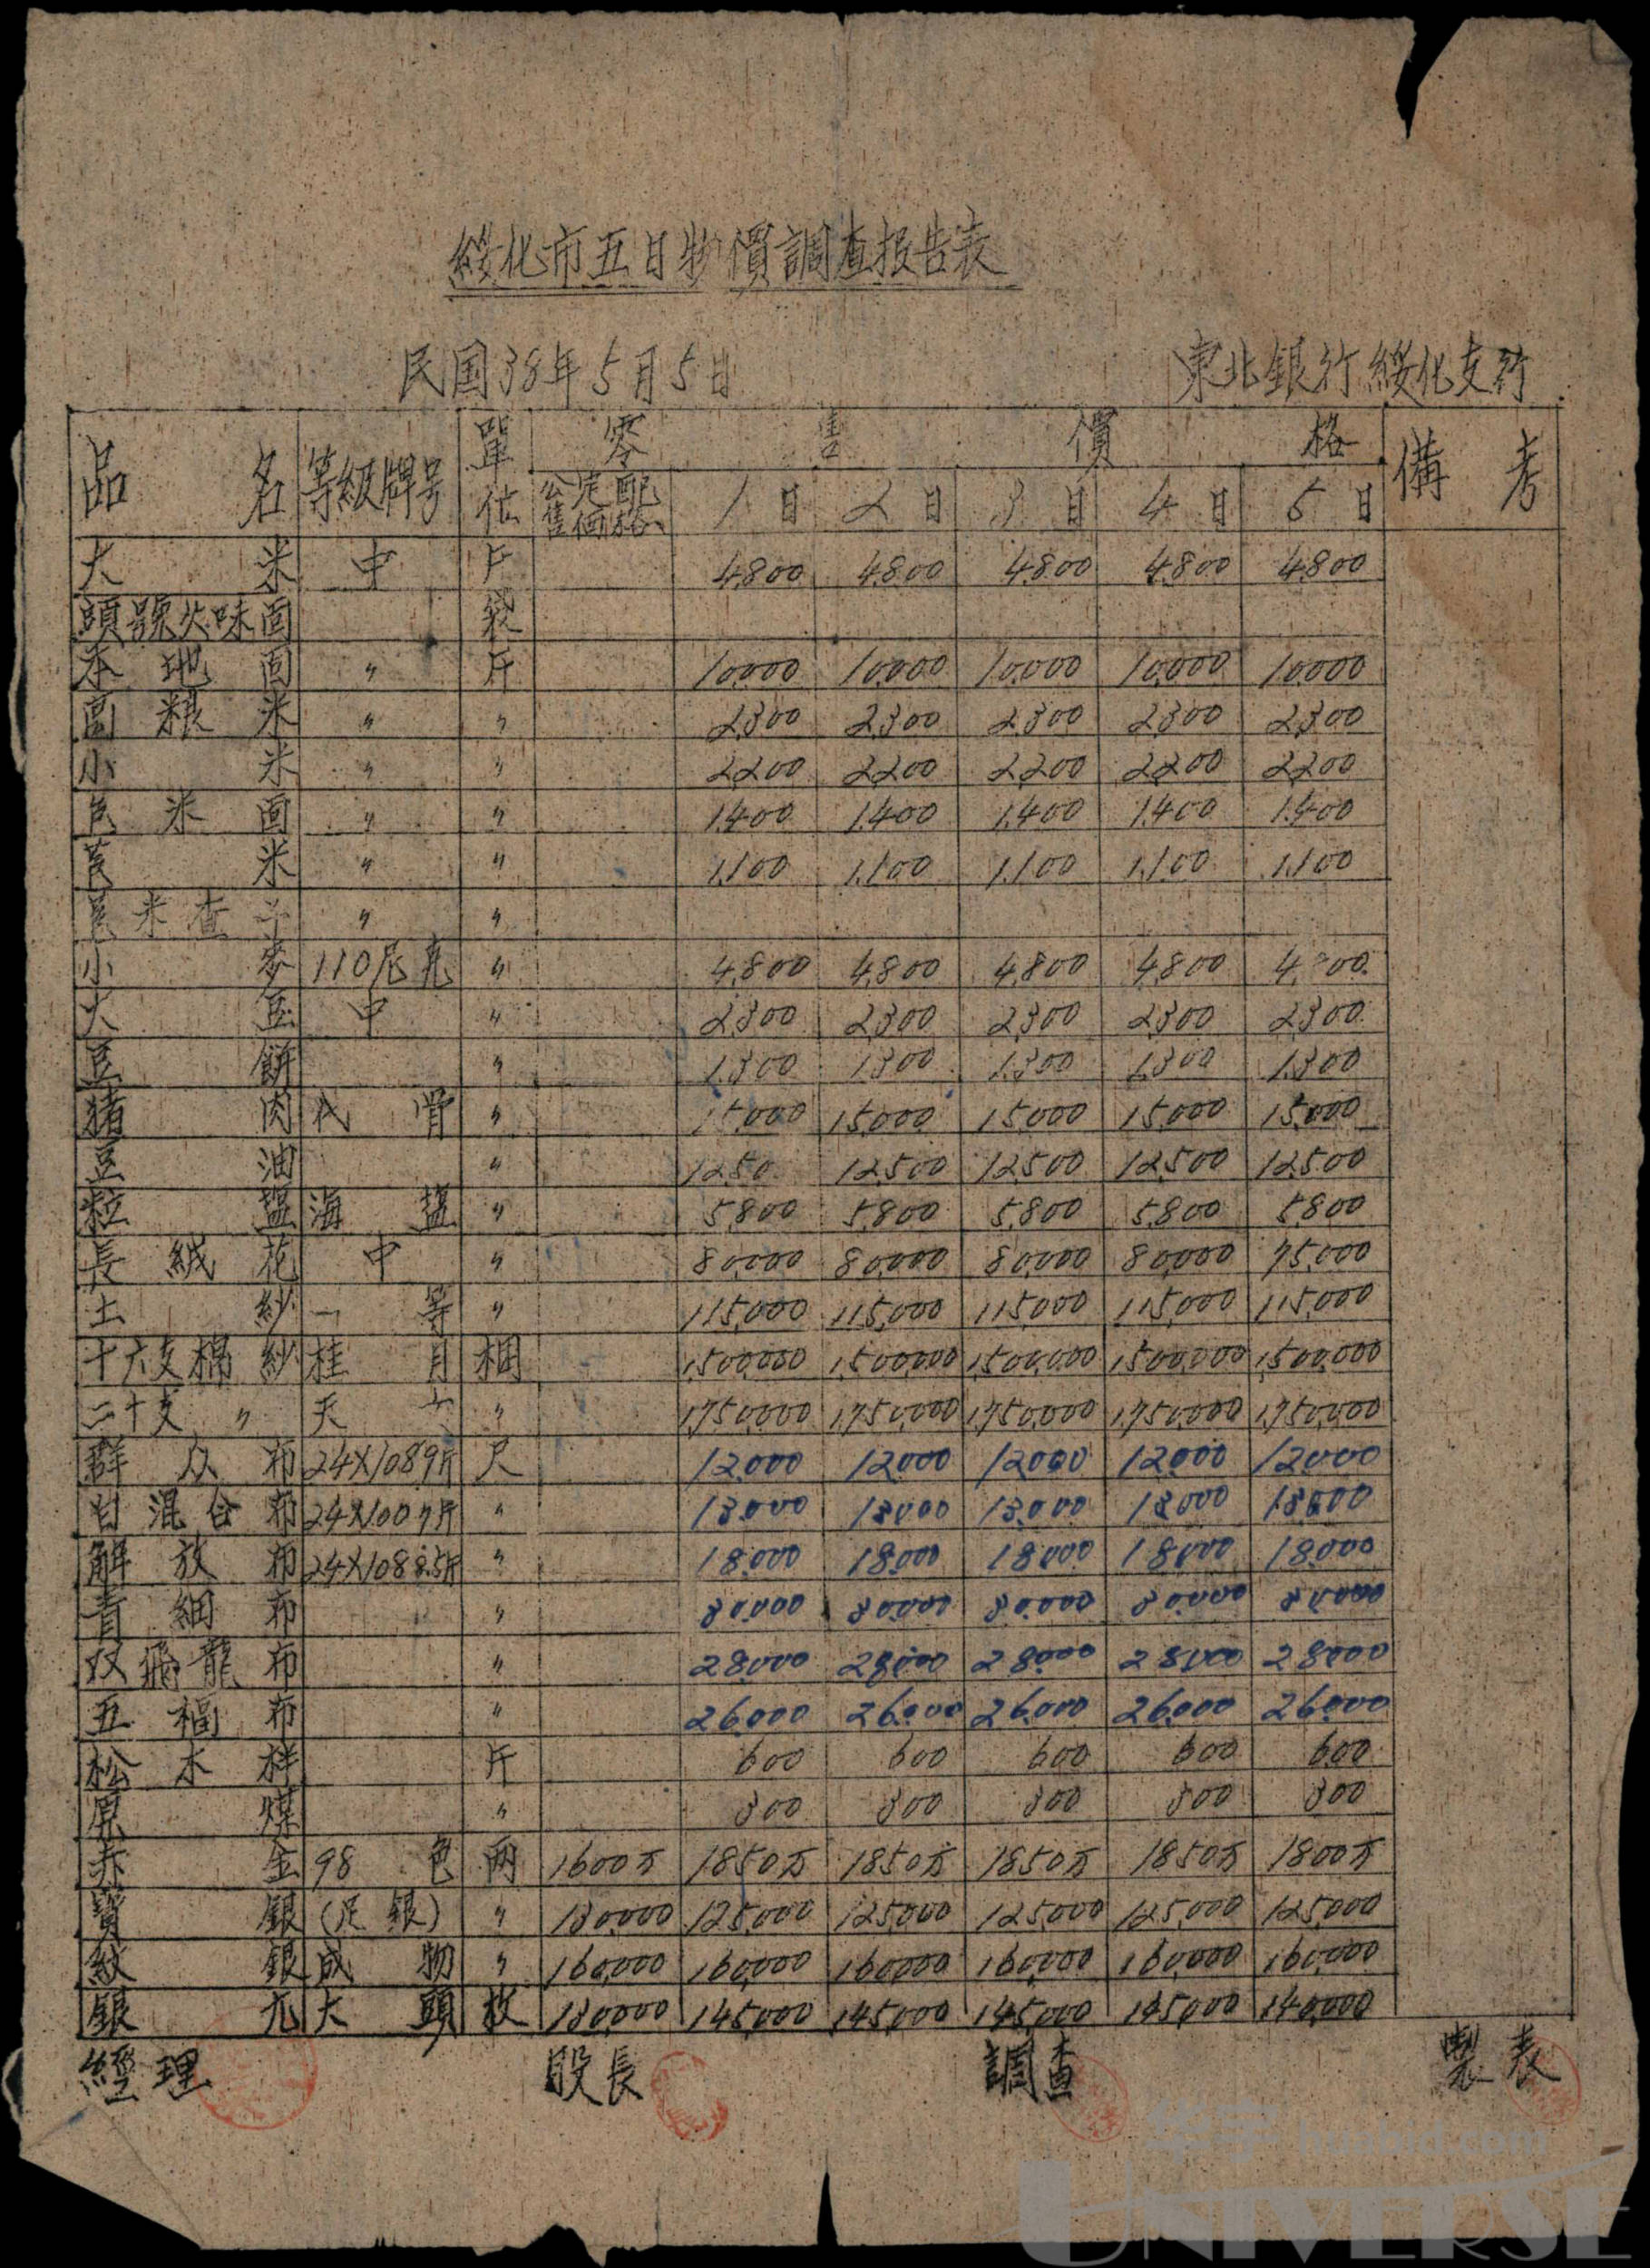 綏化市五日物價調查报告表
民国38年5月5日 東北銀行綏化支行
品名 等級牌号 單位 零售價格 備考
公定配售価格 1日 2日 3日 4日 5日
大米 中 斤 4,800 4,800 4,800 4,800 4,800
頭號火味面 袋
本地面 〃 斤 10,000 10,000 10,000 10,000 10,000
高粮米 〃 〃 2,300 2,300 2,300 2,300 2,300
小米 〃 〃 2,200 2,200 2,200 2,200 2,200
包米面 〃 〃 1,400 1,400 1,400 1,400 1,400
米 〃 〃 1,100 1,100 1,100 1,100 1,100
米查子 〃 〃
小麥 110瓦瓦 〃 4,800 4,800 4,800 4,800
大豆 中 〃 2,300 2,300 2,300 2,300 2,300
豆餅 〃 1,300 1,300 1,300 1,300 1,300
猪肉 代骨 〃 15,000 15,000 15,000 15,000 15,000
豆油 〃 12,500 12,500 12,500 12,500
粒盐 海盐 〃 5,800 5,800 5,800 5,800 5,800
長絨花 中 〃 80,000 80,000 80,000 80,000 75,000
土紗 一等 〃 115,000 115,000 115,000 115,000 115,000
十六支棉紗 桂月 梱 1,500,000 1,500,000 1,500,000 1,500,000 1,500,000
二十支〃 天女 〃 1,750,000 1,750,000 1,750,000 1,750,000 1,750,000
群众布 24X108 9斤 尺 12,000 12,000 12,000 12,000 12,000
白混合布 24X100 7斤 〃 13,000 13,000 13,000 13,000 13,000
解放布 24X108 8.5斤 〃 18,000 18,000 18,000 18,000 18,000
青細布 〃 30,000 30,000 30,000 30,000 30,000
双飛龍布 〃 28,000 28,000 28,000 28,000 28,000
五福布 〃 26,000 26,000 26,000 26,000 26,000
松木柈 斤 600 600 600 600 600
原煤 〃 300 300 300 300 300
赤金 98色 両 1600万 1850万 1850万 1850万 1850万 1800万
寳銀 (足銀) 〃 130,000 125,000 125,000 125,000 125,000 125,000
紋銀 成物 〃 160,000 160,000 160,000 160,000 160,000 160,000
銀元 大頭 枚 130,000 145,000 145,000 145,000 145,000 140,000
經理 股長 調查 製表
华宇 huabid.com
UNIVERSE